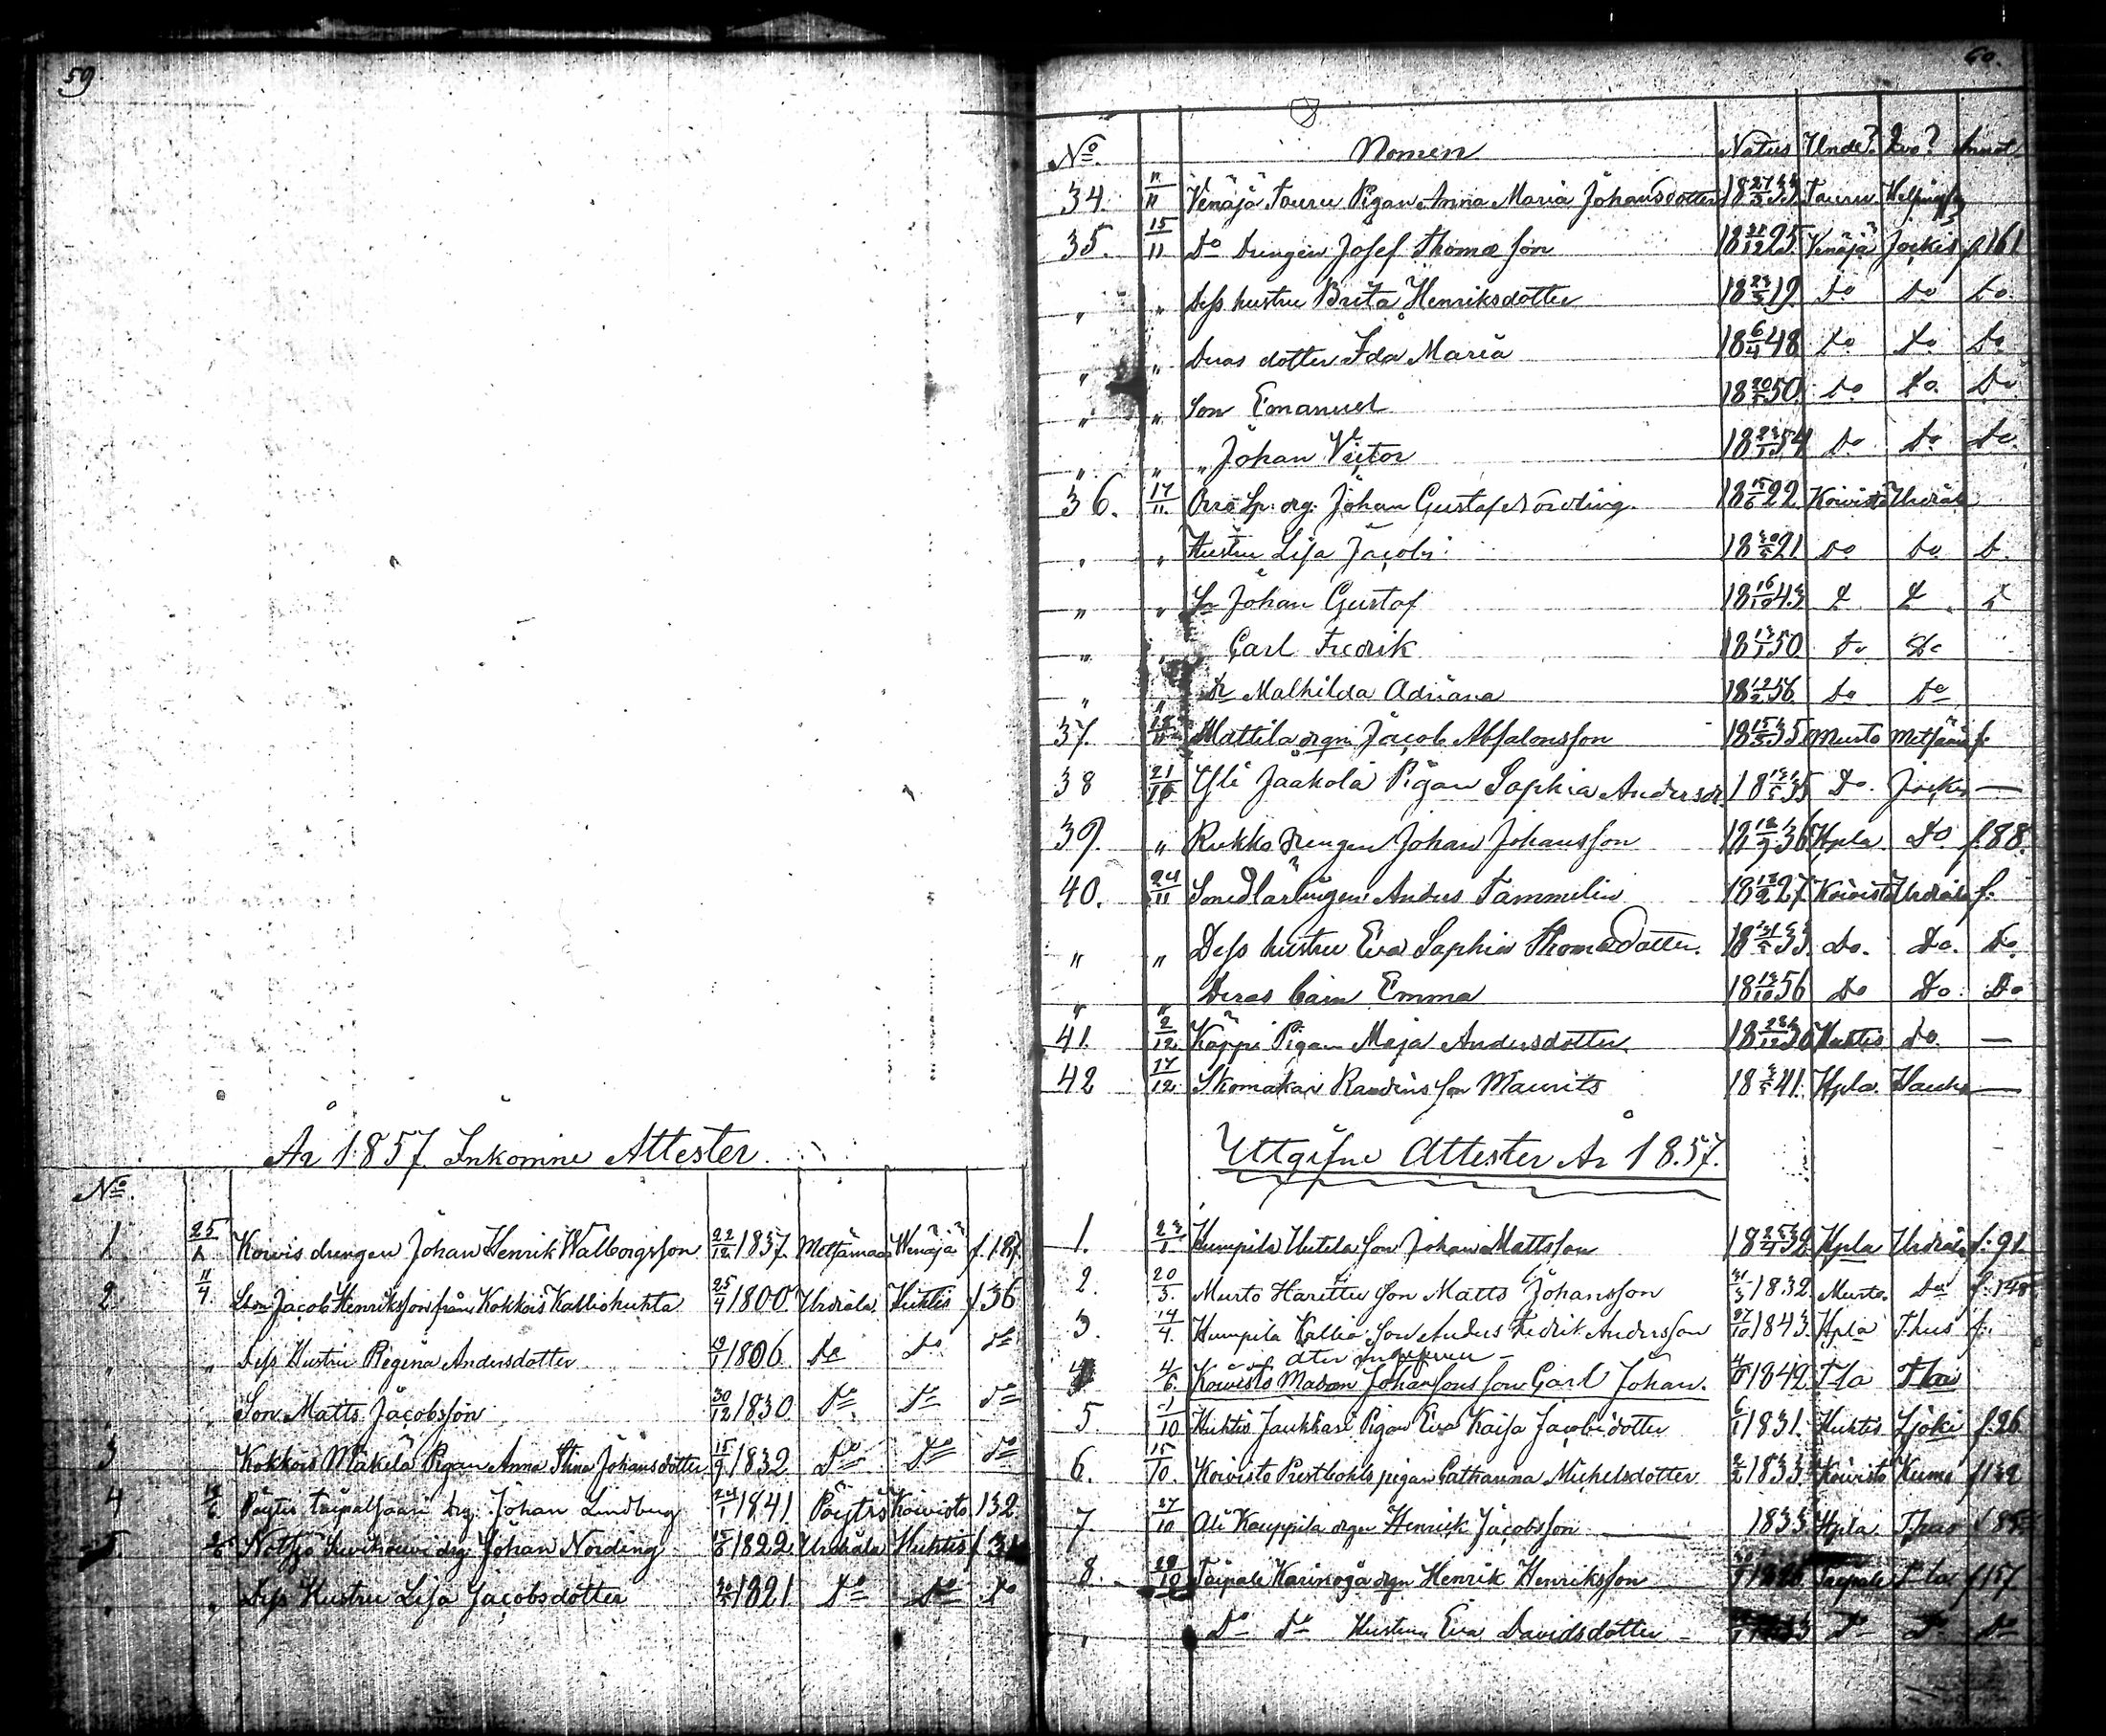 59.
År 1857 Inkomne Attester.
No.
1 25/1 Koivis drengen Johan Henrik Walborgsson 22/12 1837 Metsämaa Wenäjä f. 187.
2 11/4 Son Jacob Henriksson från Kokkois Kalliohuhta 25/4 1800. Urdiala Huhtis f 36
" " Dess Hustru Regina Andersdotter 19/1 1806 do do do
" " Son Matts Jacobsson 30/12 1830 do do do
3 Kokkois Mäkelä Pigan Anna Stina Johansdotter 15/9 1832 do do do
4 Pöytis taipalsaari drg. Johan Lindberg 24/1 1841. Pöytis Koivisto 132
5. Johan Nording 15/6 1822 Urdiala Huhtis f 31
" " Dess Hustru Lisa Jacobsdotter 30/5 1821 do do do
60.
No. Nomen Natus Unde? Quo? Annot
34. 11/11 Venäjä Tauru Pigan Anna Maria Johansdotter 18 27/3 33. Tauru Helsingfs
35. 15/11 Do Drengen Josef Thomæ son 18 31/12 25. Venäjä Jockis f. 161
" " Dess hustru Brita Henriksdotter 18 23/3 19 do do do
" " Deras dotter Ida Maria 18 6/4 48 do do Do
" " Son Emanuel 18 20/5 50. do do. Do
" " " Johan Victor 18 23/1 54 Do Do Do.
36. 17/11. Orro Sp. drg. Johan Gustaf Nording. 18 15/6 22 Koivisto Urdiala
" " Hustru Lisa Jacobs: 18 30/5 21 do do D.
" " Sn Johan Gustaf 18 16/10 43 D D D
" " Carl Fredrik 18 13/1 50 do do
" " Dr Mathilda Adriana 18 12/2 56 do do
37. Mattila drgn Jacob Absalonsson 18 15/3 35 Murto Metsämaa f.
38 21/10 Yli Jaakola Pigan Sophia Andersdr 35 Do. Jockis —
39. " Rukko drengen Johan Johansson 36 Hpla Do f. 88.
40. 24/11 Smedlärlingen Anders Tammelin 27. Koivisto Urdiala f.
" " Dess hustru Eva Sophia Thomædotter. 33. do. Do. Do.
" " Deras barn Emma 18 13/10 56 Do Do. Do
41. 2/12 Käppi Pigan Maja Andersdotter. 30 Huhtis do. —
42 17/12. Skomakar Randins son Maurits 41. Hpla —
Utgifne Attester År 1857.
1. Humpila Uutela Son Johan Mattsson 18 25/4 32 Hpla Urdiala f. 91.
2. 20/3. Murto Harittu Son Matts Johansson 1832. Murto. Do f. 148
3. 14/4. Humpila Kallio Son Anders Fredrik Andersson 27/10 1843. Hpla T.hus f.
åter ingifven —
4 4/6. Koivisto Johanssons son Carl Johan. 1842 Tla T.hus
5. 1/10 Huhtis Jaukkari Pigan Eva Kaisa Jacobsdotter 6/1 1831. Huhtis Ljoki f. 26.
6. 15/10. Koivisto Prestbohls pigan Catharina Michelsdotter 2/2 1833 Koivisto Kumo f 132
7. 27/10 Ali Kauppila drgn Henrik Jacobsson — 1833. Hpla. T.hus f 85
8. 29/10 Taipale Karinoja drgn Henrik Henriksson Taipale f 157
" Do Do Hustrun Eva Davidsdotter — Do Do Do